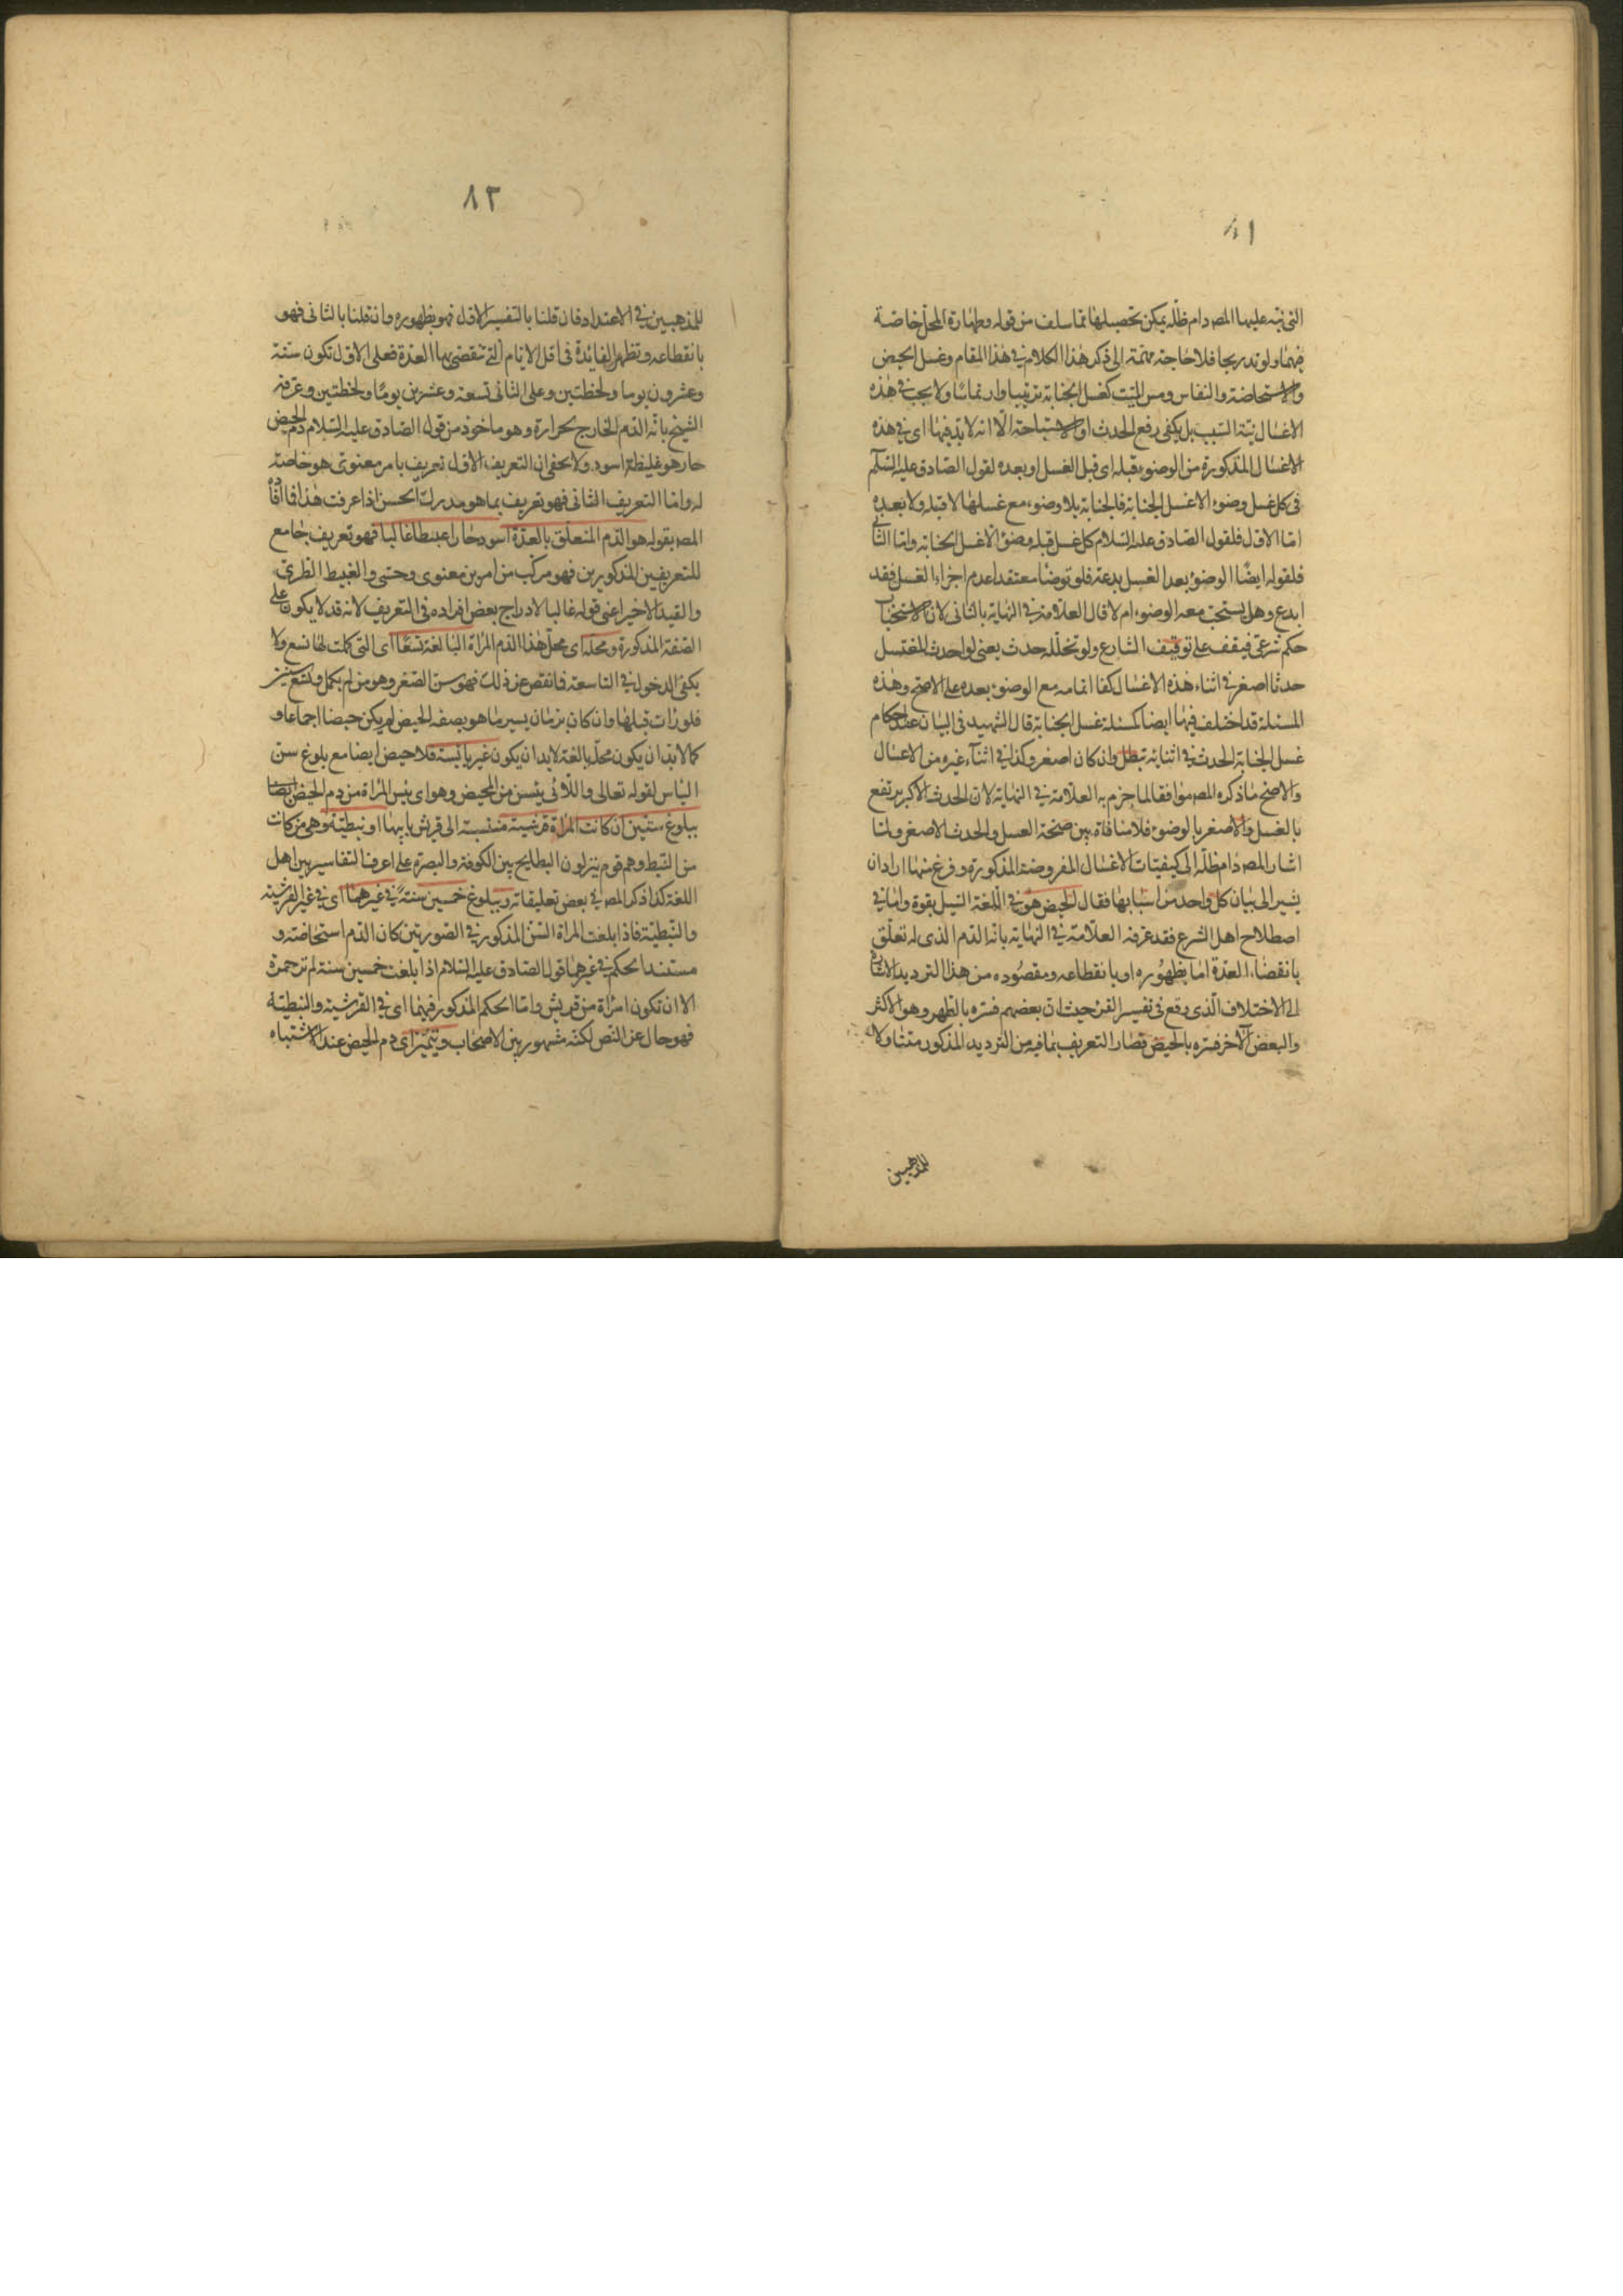 ٨١
التى نبه عليها المصه دام ظله يمكن تحصيلها مما سلف من قوله وطهارة المحل خاصة
فيهما ولو تدريجا فلا حاجة مهمة الى ذكر هذا الكلام فى هذا المقام وغسل الحيض
والاستحاضة والنفاس ومس الميت كغسل الجنابة ترتيبا وارتماسا ولا يجب فى هذه
الاغسال نية السبب بل يكفى رفع الحدث او الاستباحة الا انه لا بد فيها اى فى هذه
الاغسال المذكورة من الوضوء قبله اى قبل الغسل او بعده لقول الصادق عليه السلم
فى كل غسل وضوء الا غسل الجنابة فالجنابة بلا وضوء مع غسلها لا قبله ولا بعده
اما الاول فلقول الصادق عليه السلام كل غسل قبله وضوء الا غسل الجنابة واما الثانى
فلقوله ايضا الوضوء بعد الغسل بدعة فلو توضا معتقدا عدم اجزاء الغسل فقد
ابدع وهل يستحب معه الوضوء ام لا قال العلامة فى النهاية بالثانى لان الاستحباب
حكم شرعى فيقف على توقيف الشارع ولو تخلله حدث يعنى لو احدث المغتسل
حدثا اصغر فى اثناء هذه الاغسال كفا اتمامه مع الوضوء بعده على الاصح وهذه
المسئلة قد اختلف فيها ايضا كمسئلة غسل الجنابة قال الشهيد فى البيان عقد احكام
غسل الجنابة الحدث فى اثنائه تبطل وان كان اصغر وكذا فى اثناء غيره من الاغسال
والاصح ما ذكره المصه موافقا لما جزم به العلامة فى النهاية لان الحدث الاكبر يرتفع
بالغسل والاصغر بالوضوء فلا منافاة بين صحة الغسل والحدث الاصغر ولما
اشار المصه دام ظله الى كيفيات الاغسال المفروضة المذكورة وفرغ منها اراد ان
يشير الى بيان كل واحد من اسبابها فقال الحيض هو فى اللغة السيل بقوة واما فى
اصطلاح اهل الشرع فقد عرفه العلامة فى النهاية بانه الدم الذى له تعلق
بانقضاء العدة اما بظهوره او بانقطاعه ومقصوده من هذا الترديد الاشارة
الى الاختلاف الذى وقع فى تفسير القرء حيث ان بعضهم فسره بالطهر وهو الاكثر
والبعض الآخر فسره بالحيض فصار التعريف بما فيه من الترديد المذكور متناولا
للمذهبين
٨٢
للمذهبين فى الاعتداد فان قلنا بالتفسير الاول فهو بظهوره وان قلنا بالثانى فهو
بانقطاعه وتظهر الفايدة فى اقل الايام التى تنقضى بها العدة فعلى الاول تكون ستة
وعشرون يوما ولحظتين وعلى الثانى تسعة وعشرين يوما ولحظتين وعرفه
الشيخ بانه الدم الخارج بحرارة وهو ماخوذ من قول الصادق عليه السلام دم الحيض
حار هو غليظ اسود ولا يخفى ان التعريف الاول تعريف بامر معنوى هو خاصة
له واما التعريف الثانى فهو تعريف بما هو مدرك الحس اذا عرفت هذا فما افاده
المصه بقوله هو الدم المتعلق بالعدة اسود حارا عبيطا غالبا فهو تعريف جامع
للتعريفين المذكورين فهو مركب من امرين معنوى وحسى والغبيط الطرى
والقيد الاخير اعنى قوله غالبا لادراج بعض افراده فى التعريف لانه قد لا يكون على
الصفة المذكورة ومحله اى محل هذا الدم المراة البالغة تسعا اى التى كملت لها تسع ولا
يكفى الدخول فى التاسعة فانقص عن ذلك فهو سن الصغر وهو من لم يكمل له تسع سنين
فلو رات قبلها وان كان بزمان يسير ما هو بصفه الحيض لم يكن حيضا اجماعا و
كما لا بد ان يكون محله بالغة لا بد ان يكون غير يائسة فلا حيض ايضا مع بلوغ سن
الياس لقوله تعالى واللائى يئسن من المحيض وهو اى يئس المراة من دم الحيض ايضا
ببلوغ ستين ان كانت المراة قرشية منتسبة الى قريش بابيها او نبطية وهى من كانت
من النبط وهم قوم ينزلون البطايح بين الكوفة والبصرة على اعرف التفاسير بين اهل
اللغة كذا ذكر المصه فى بعض تعليقاته وببلوغ خمسين سنة فى غيرهما اى فى غير القرشية
والنبطية فاذا بلغت المراة السن المذكور فى الصورتين كان الدم استحاضة و
مستند الحكم فى غيرهما قول الصادق عليه السلام اذا بلغت خمسين سنة لم تر حمرة
الا ان تكون امراة من قريش واما الحكم المذكور فيهما اى فى القرشية والنبطية
فهو خال عن النص لكنه مشهور بين الاصحاب ويتميز اى دم الحيض عند الاشتباه